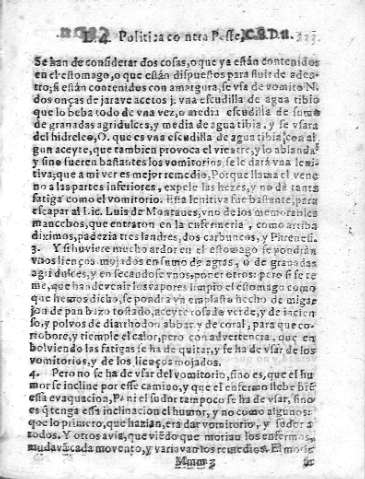 L. 4. Politica contra Peste,
Se han de considerar dos cosas, o que ya están contenidos
en el estomago, o que están dispuestos para fluir de aden-
tro; si están contenidos con amargura, se vsa de vomito N.
dos onças de jarave acetos j. vna escudilla de agua tibio
que lo beba todo de vna vez, o media escudilla de sumo
de granadas agridulces, y media de agua tibia. y se vsara
del hidreleo, O. que es vna escudilla de agua tibia, con al
gun aceyte, que tambien provoca el vientre, y lo ablanda,
y si no fueren bastantes los vomitorios, se le dará vna leni-
tiva, que a mi ver es mejor remedio, Porque llama el vene
no a las partes inferiores, expele las hezes, y no dà tanta
fatiga como el vomitorio. Esta lenitiva fue bastante, para
escapar al Lic. Luis de Montaues, vno de los memorables
mancebos, que entraron en la enfermeria, como arriba
diximos, padezia tres landres, dos carbuncos, y Phrenesi.
3. Y si huviere mucho ardor en el estomago se pondrán
vnos lienços mojados en sumo de agras, o de granadas
agridulces, y en secandose vnos, poner otros: pero si se te
me, que han de venir los vapores limpio el estomago como
que hemos dicho, se pondra vn emplasto hecho de miga-
jon de pan bizo tostado, aceyte rosado verde, y de incien
so, y polvos de diarrhodon abbat y de coral, para que co-
rrobore, y tiemple el calor, pero con advertencia, que en
bolviendo las fatigas se ha de quitar, y se ha de vsar de los
vomitorios, y de los lienços mojados.
4. Pero no se ha de vsar del vomitorio, sino es, que el hu
mor se incline por esse camino, y que el enfermo lleve biẽ
esta evaquacion, P. ni el sudor tampoco se ha de vsar, sino
es q̃ tenga essa inclinacion el humor, y no como algunos:
que lo primero, que hazian, era dar vomitorio, y sudor a
todos. Y otros avia, que viẽdo que morian los enfermos,
mudavã cada momento, y variavan los remedios. El